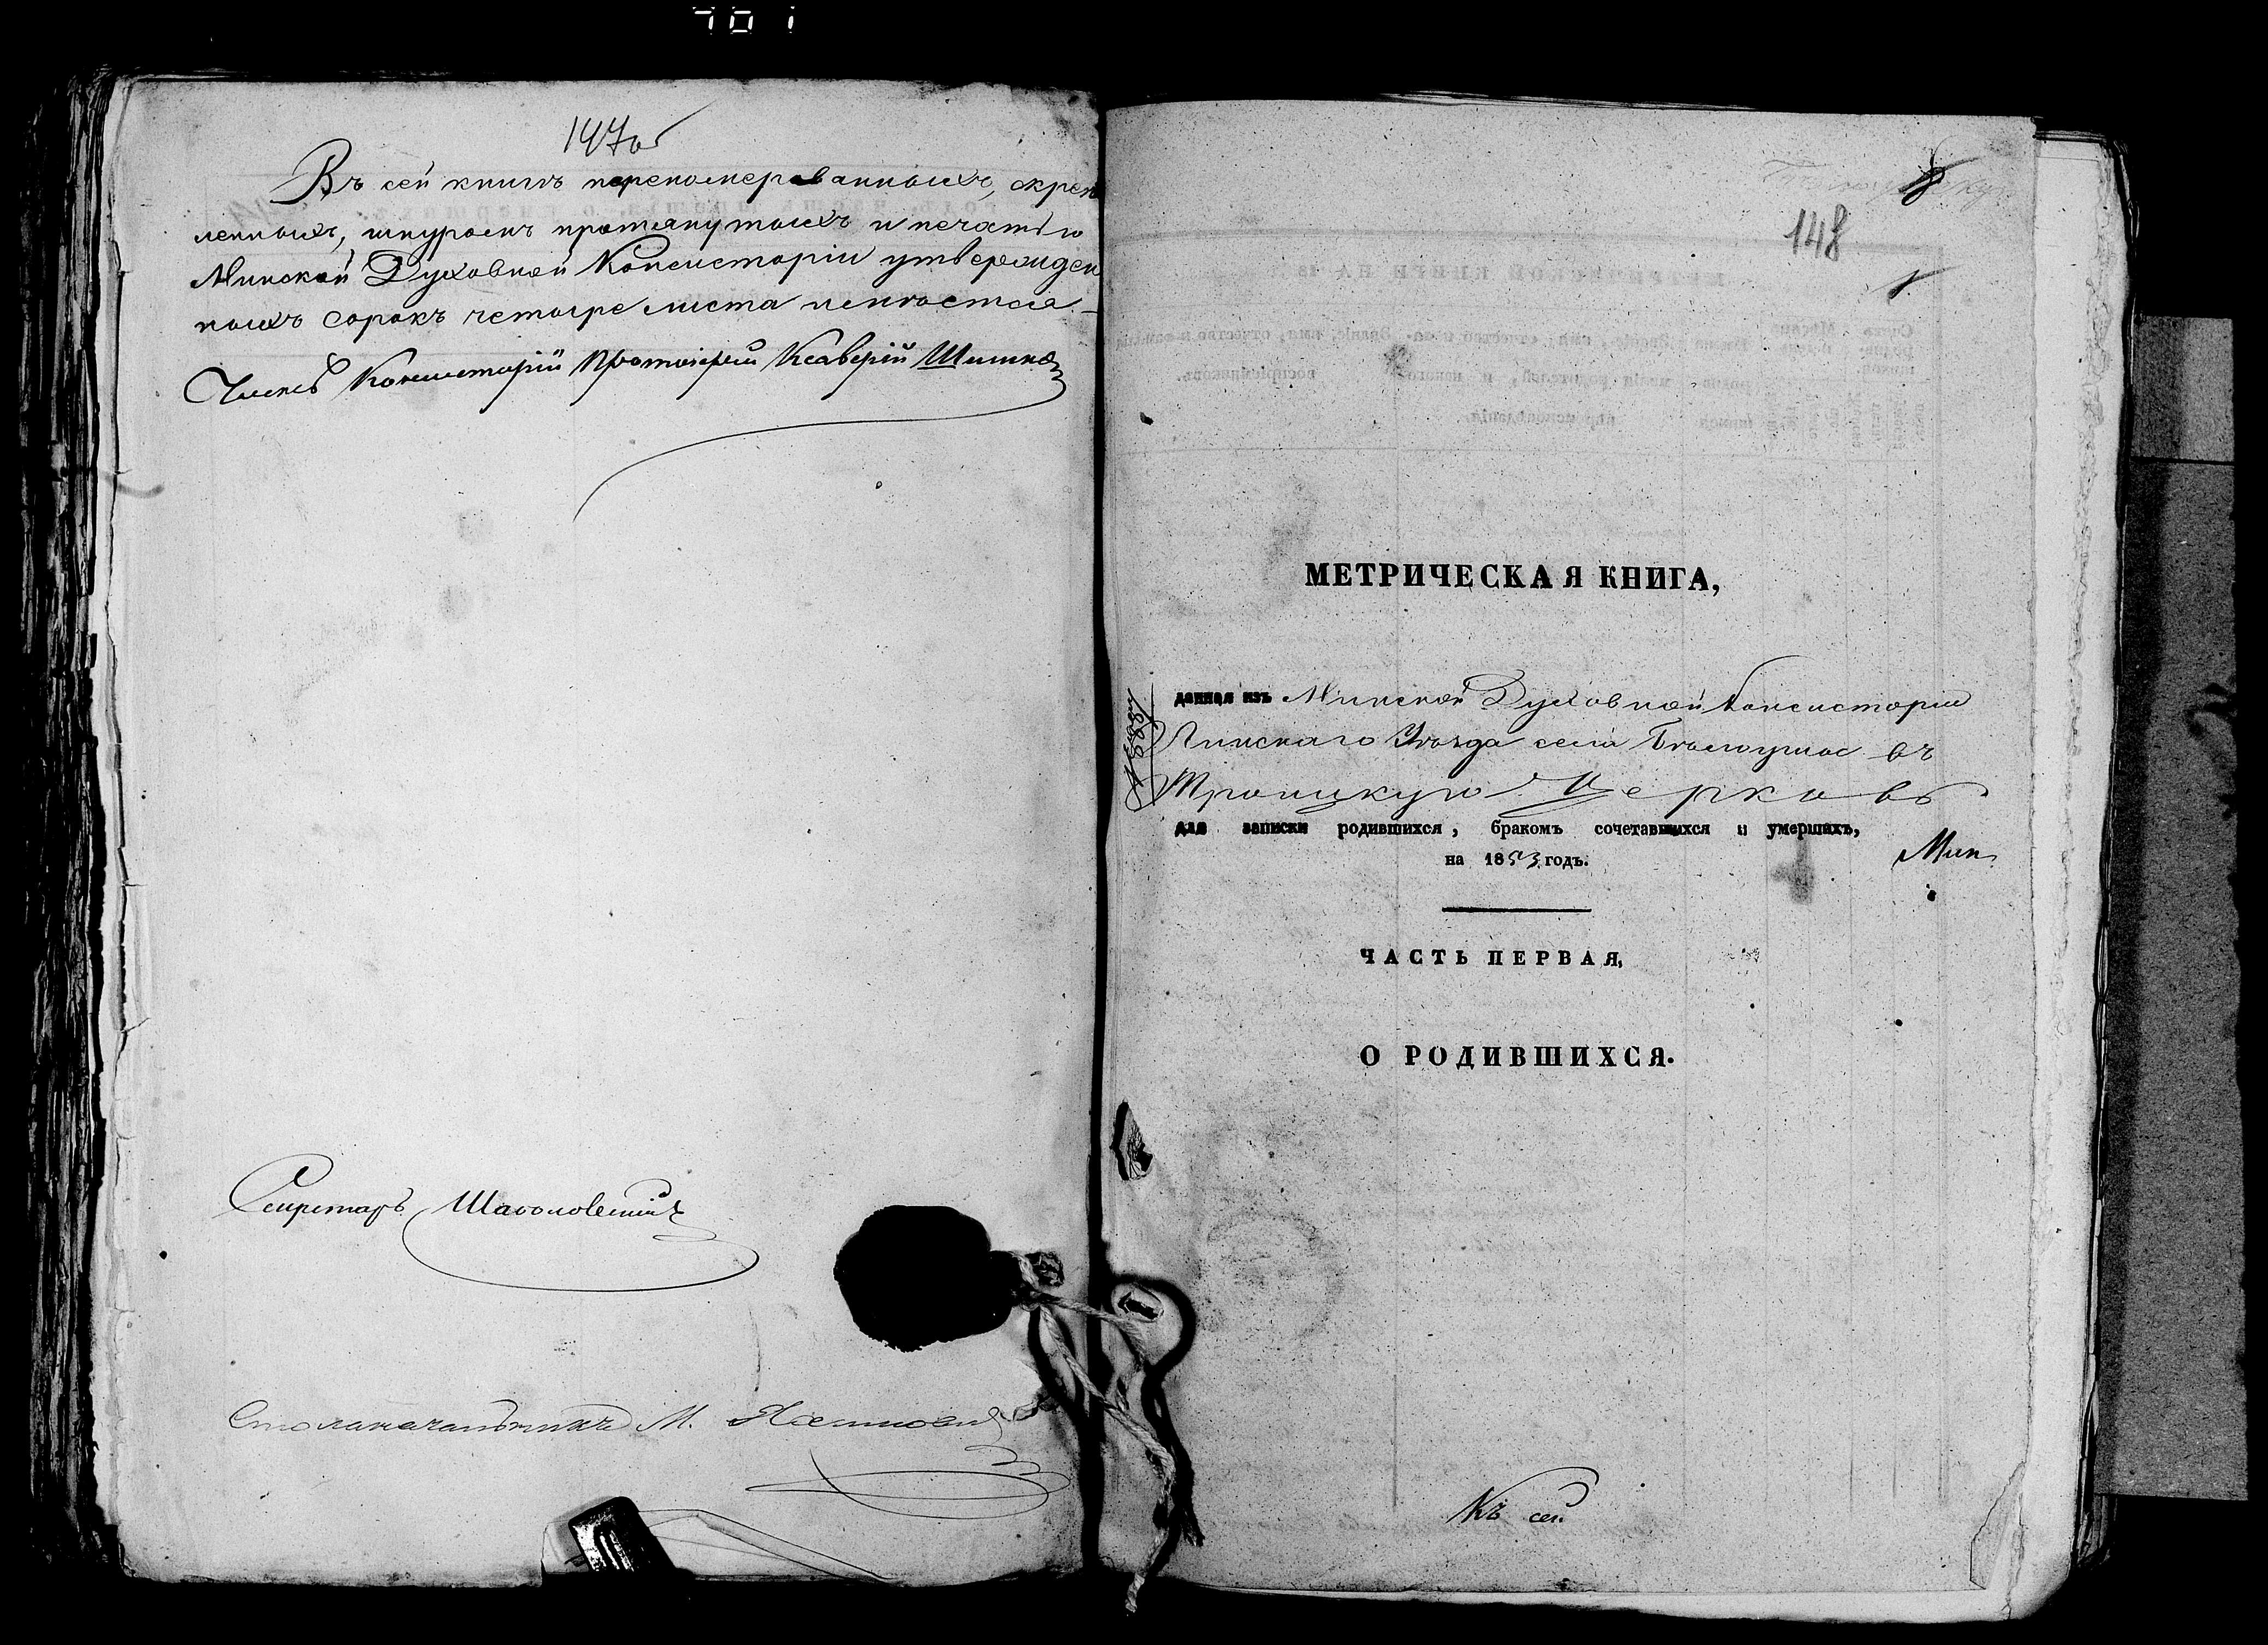 701
147об
Въ сей книгѣ перепомерованныхъ, скреп
ленныхъ, шнуромъ протянутыхъ и печатію
Минской Духовной Консисторіи утвержден
ныхъ сорокъ четыре листа
Членъ Консисторіи Протоіерей Ксаверій
Секретарь
Столоначальникъ М.
148
1
МЕТРИЧЕСКАЯ КНИГА,
данная изъ Минской Духовной Консисторіи
Пинскаго Уѣзда села Бѣлоуши въ
Троицкую Церковь
для записки родившихся, бракомъ сочетавшихся и умершихъ,
на 1853 годъ.
Мин
ЧАСТЬ ПЕРВАЯ,
О РОДИВШИХСЯ.
Къ сей